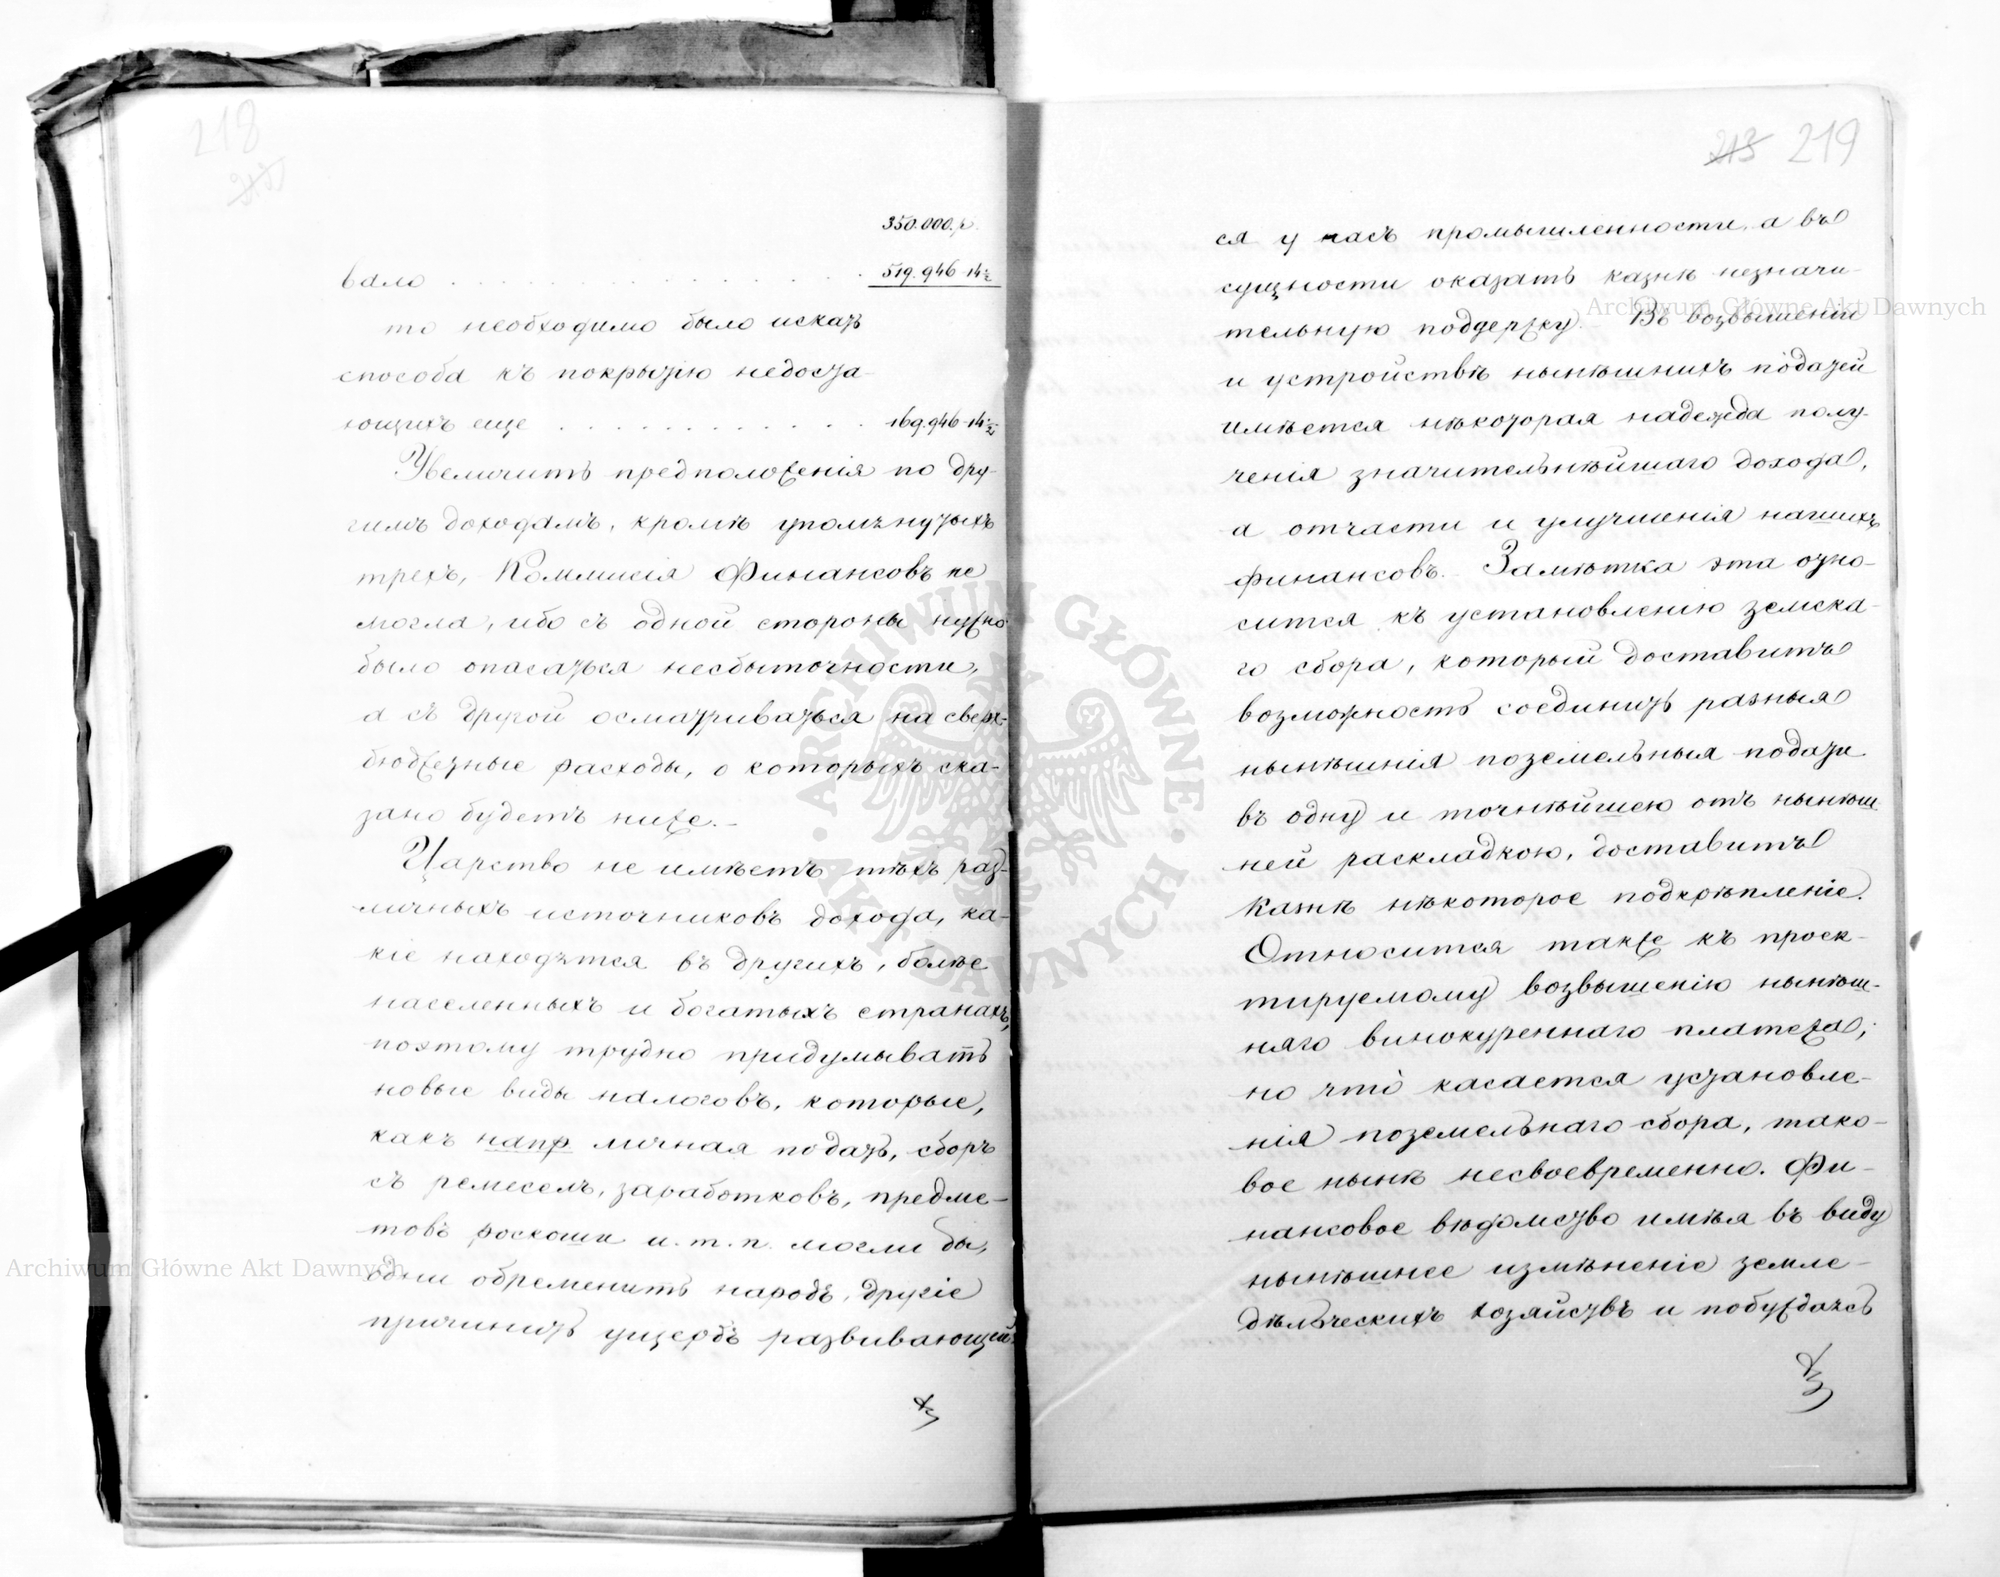 218
350.000 р.
вало . . . . . . . . . . . . . . 519.946-14½
то необходимо было искать
способа къ покрытію недоста-
ющихъ еще . . . . . . . . . . . . 169.946-14½
Увеличить предположенія по дру-
гимъ доходамъ, кромѣ упомянутыхъ
трехъ, Коммисія Финансовъ не
могла, ибо съ одной стороны нужно
было опасаться несбыточности,
а съ другой осматриваться на сверх-
бюджетные расходы, о которыхъ ска-
зано будетъ ниже.-
Царство не имѣетъ тѣхъ раз-
личныхъ источниковъ дохода, ка-
кіе находятся въ другихъ, болѣе
населенныхъ и богатыхъ странахъ,
поэтому трудно придумывать
новые виды налоговъ, которые,
какъ напр. личная подать, сборъ
съ ремеслъ, заработковъ, предме-
товъ роскоши и.т.п. могли бы,
одни обременить народъ, другіе
причинить ущербъ развивающей-
219
ся у насъ промышленности, а въ
сущности оказать казнѣ незначи-
тельную поддержку.- Въ возвышеніи
и устройствѣ нынѣшнихъ податей
имѣется нѣкоторая надежда полу-
ченія значительнѣйшаго дохода,
а отчасти и улучшенія нашихъ
финансовъ.- Замѣтка эта отно-
сится къ установленію земска-
го сбора, который доставитъ
возможность соединить разныя
нынѣшнія поземельныя подати
въ одну и точнѣйшею отъ нынѣш-
ней раскладкою, доставитъ
казнѣ нѣкоторое подкрѣпленіе.
Относится также къ проек-
тируемому возвышенію нынѣш-
няго винокуреннаго платежа;
но что̀ касается установле-
нія поземельнаго сбора, тако-
вое нынѣ несвоевременно. Фи-
нансовое вѣдомство имѣя въ виду
нынѣшнее измѣненіе земле-
дѣльческихъ хозяйствъ и побуждаясь
Archiwum Główne Akt Dawnych
Archiwum Główne Akt Dawnych
ARCHIWUM GŁÓWNE AKT DAWNYCH